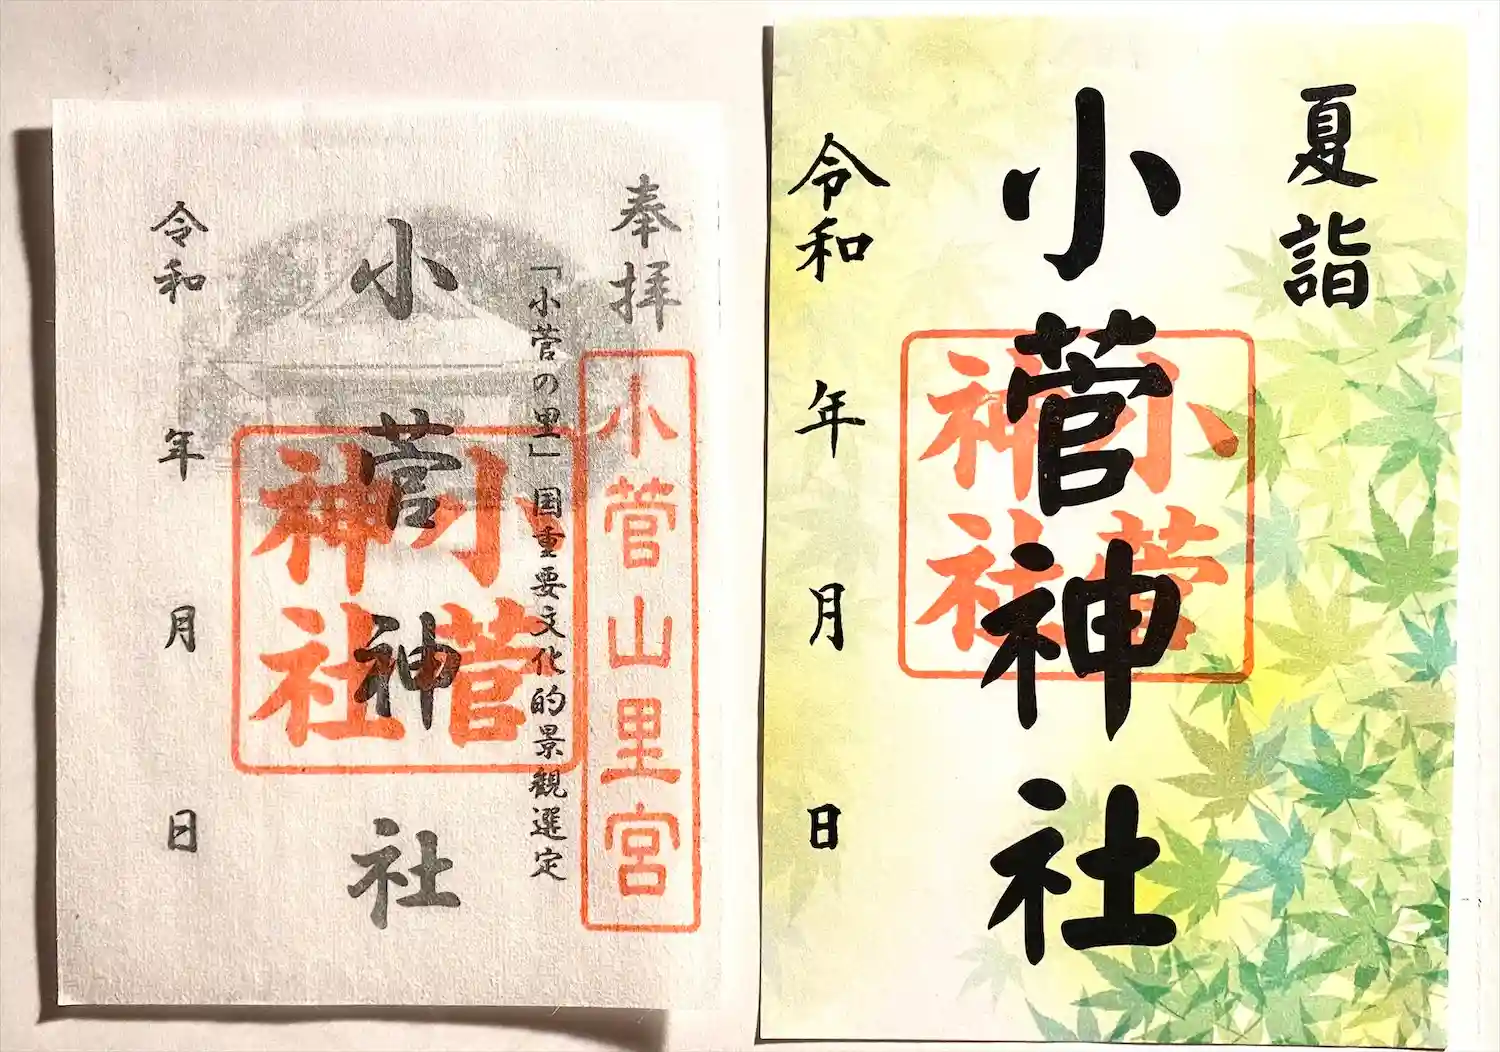 奉拝
小菅山里宮
「小菅の里」国重要文化的景観選定
小菅神社
小菅神社
令和 年 月 日
夏詣
小菅神社
小菅神社
令和 年 月 日